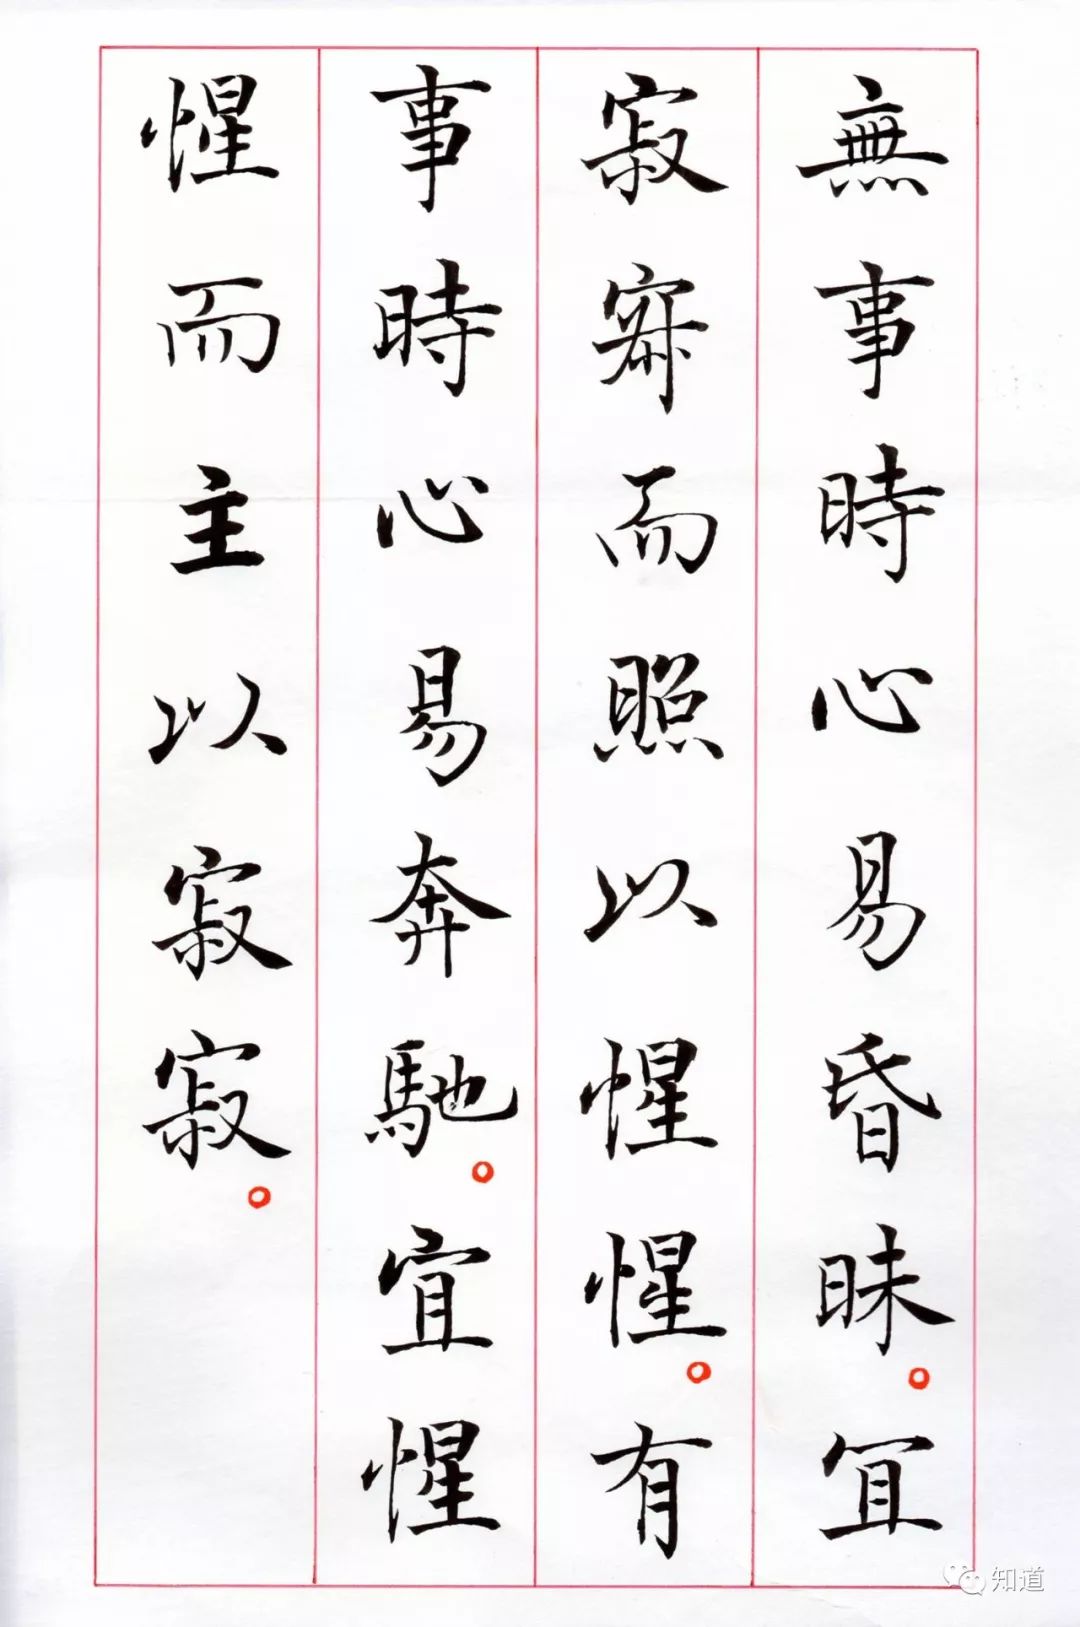 無事時心易昏昧。冝
寂寂而照以惺惺。有
事時心易奔馳。宜惺
惺而主以寂寂。
知道